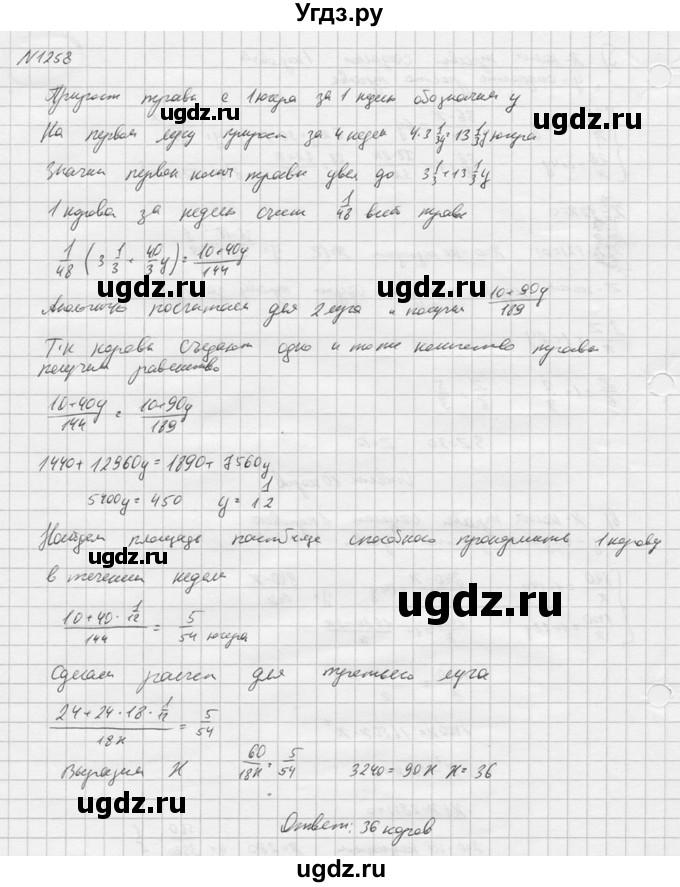 Угдз.ру
№1258
Прирост травы с 1 югера за 1 неделю обозначим y
На первом лугу прирост за 4 недел 4·3 1/3y = 13 1/3y югера
Значит первон колич травы увел до 3 1/3 + 13 1/3 y
1 корова за неделю съест 1/48 всей травы
1/48 (3 1/3 + 40/3 y) = (10+40y)/144
Аналогично посчитаем для 2 луга и получим (10+90y)/189
Т.к коровы съедают одно и тоже количество травы
получим равенство
(10+40y)/144 = (10+90y)/189
1440 + 12960y = 1890 + 7560y
5400y = 450 y = 1/12
Найдем площадь пастбища способного прокормить 1 корову
в течении недели
(10+40·1/12)/144 = 5/54 югера
Сделаем расчет для третьего луга
(24+24·18·1/12)/18x = 5/54
Выразим x 60/18x = 5/54 3240 = 90x x = 36
Ответ: 36 коров
ugdz.ru
ugdz.ru
ugdz.ru
ugdz.ru
ugdz.ru
ugdz.ru
ugdz.ru
ugdz.ru
ugdz.ru
ugdz.ru